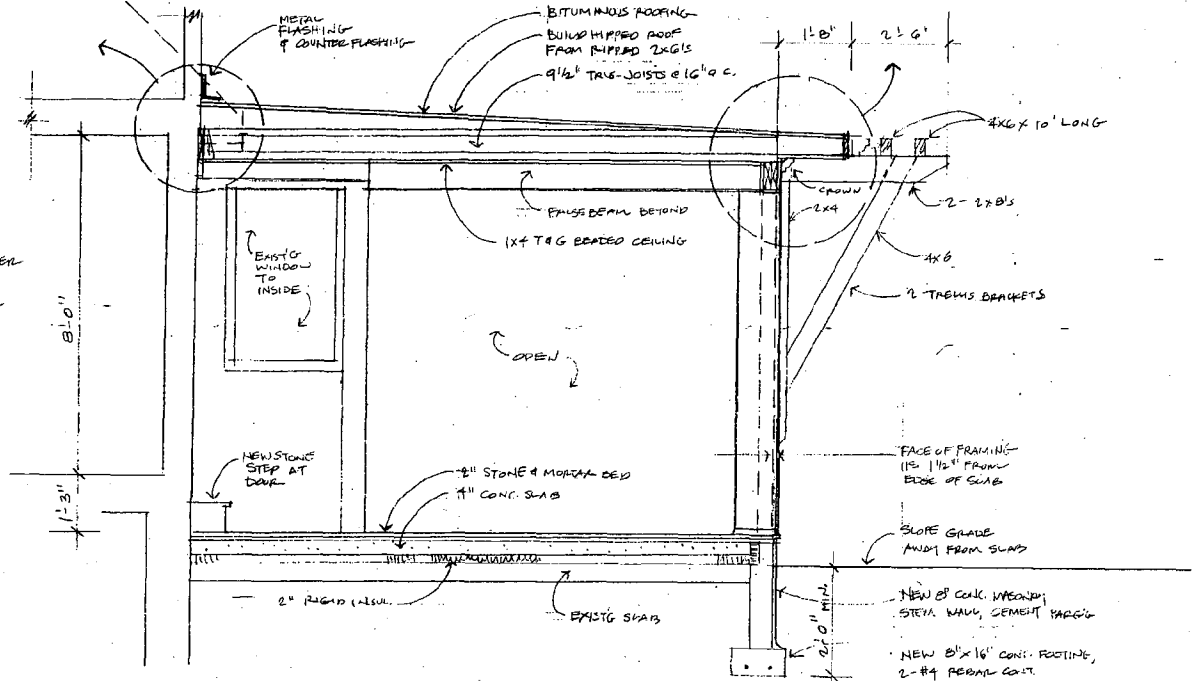 METAL
FLASHING
& COUNTERFLASHING
BITUMINOUS ROOFING
BUILD HIPPED ROOF
FROM RIPPED 2X6'S
9 1/2" TRUS-JOISTS @ 16" O.C.
1'-8"
2'-6"
4X6 X 10' LONG
CROWN
2X4
2-2X8'S
4X6
2 TRELLIS BRACKETS
FALSE BEAM BEYOND
1X4 T&G BEADED CEILING
EXIST'G
WINDOW
TO
INSIDE
OPEN
8'-0"
1'-3"
NEW STONE
STEP AT
DOOR
2" STONE & MORTAR BED
4" CONC. SLAB
FACE OF FRAMING
IS 1 1/2" FROM
EDGE OF SLAB
SLOPE GRADE
AWAY FROM SLAB
2" RIGID INSUL.
EXIST'G SLAB
2'-0" MIN.
NEW 8" CONC. MASONRY
STEM WALL, CEMENT PARG'G
NEW 8"X16" CONC. FOOTING,
2-#4 REBAR CONT.